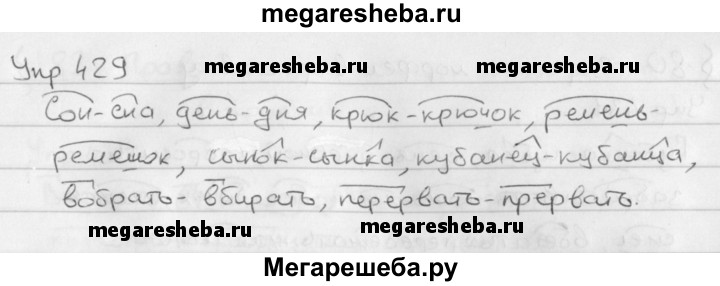 megaresheba.ru
Упр 429 megaresheba.ru megaresheba.ru
Сон-сна, день-дня, крюк-крючок, ремень-
ремешок, сынок-сынка, кубанец-кубанца,
вобрать-вбирать, перервать-прервать.
megaresheba.ru megaresheba.ru
Мегарешеба.ру